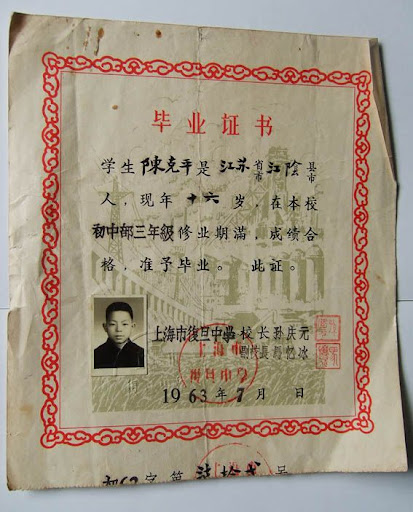 毕业证书
学生陳克平是江苏省市江陰县市
人，现年十六岁，在本校
初中部三年級修业期滿，成绩合
格，准予毕业。此证。
上海市復旦中學校长孙庆元
副校長
1963年7月 日
字第 号